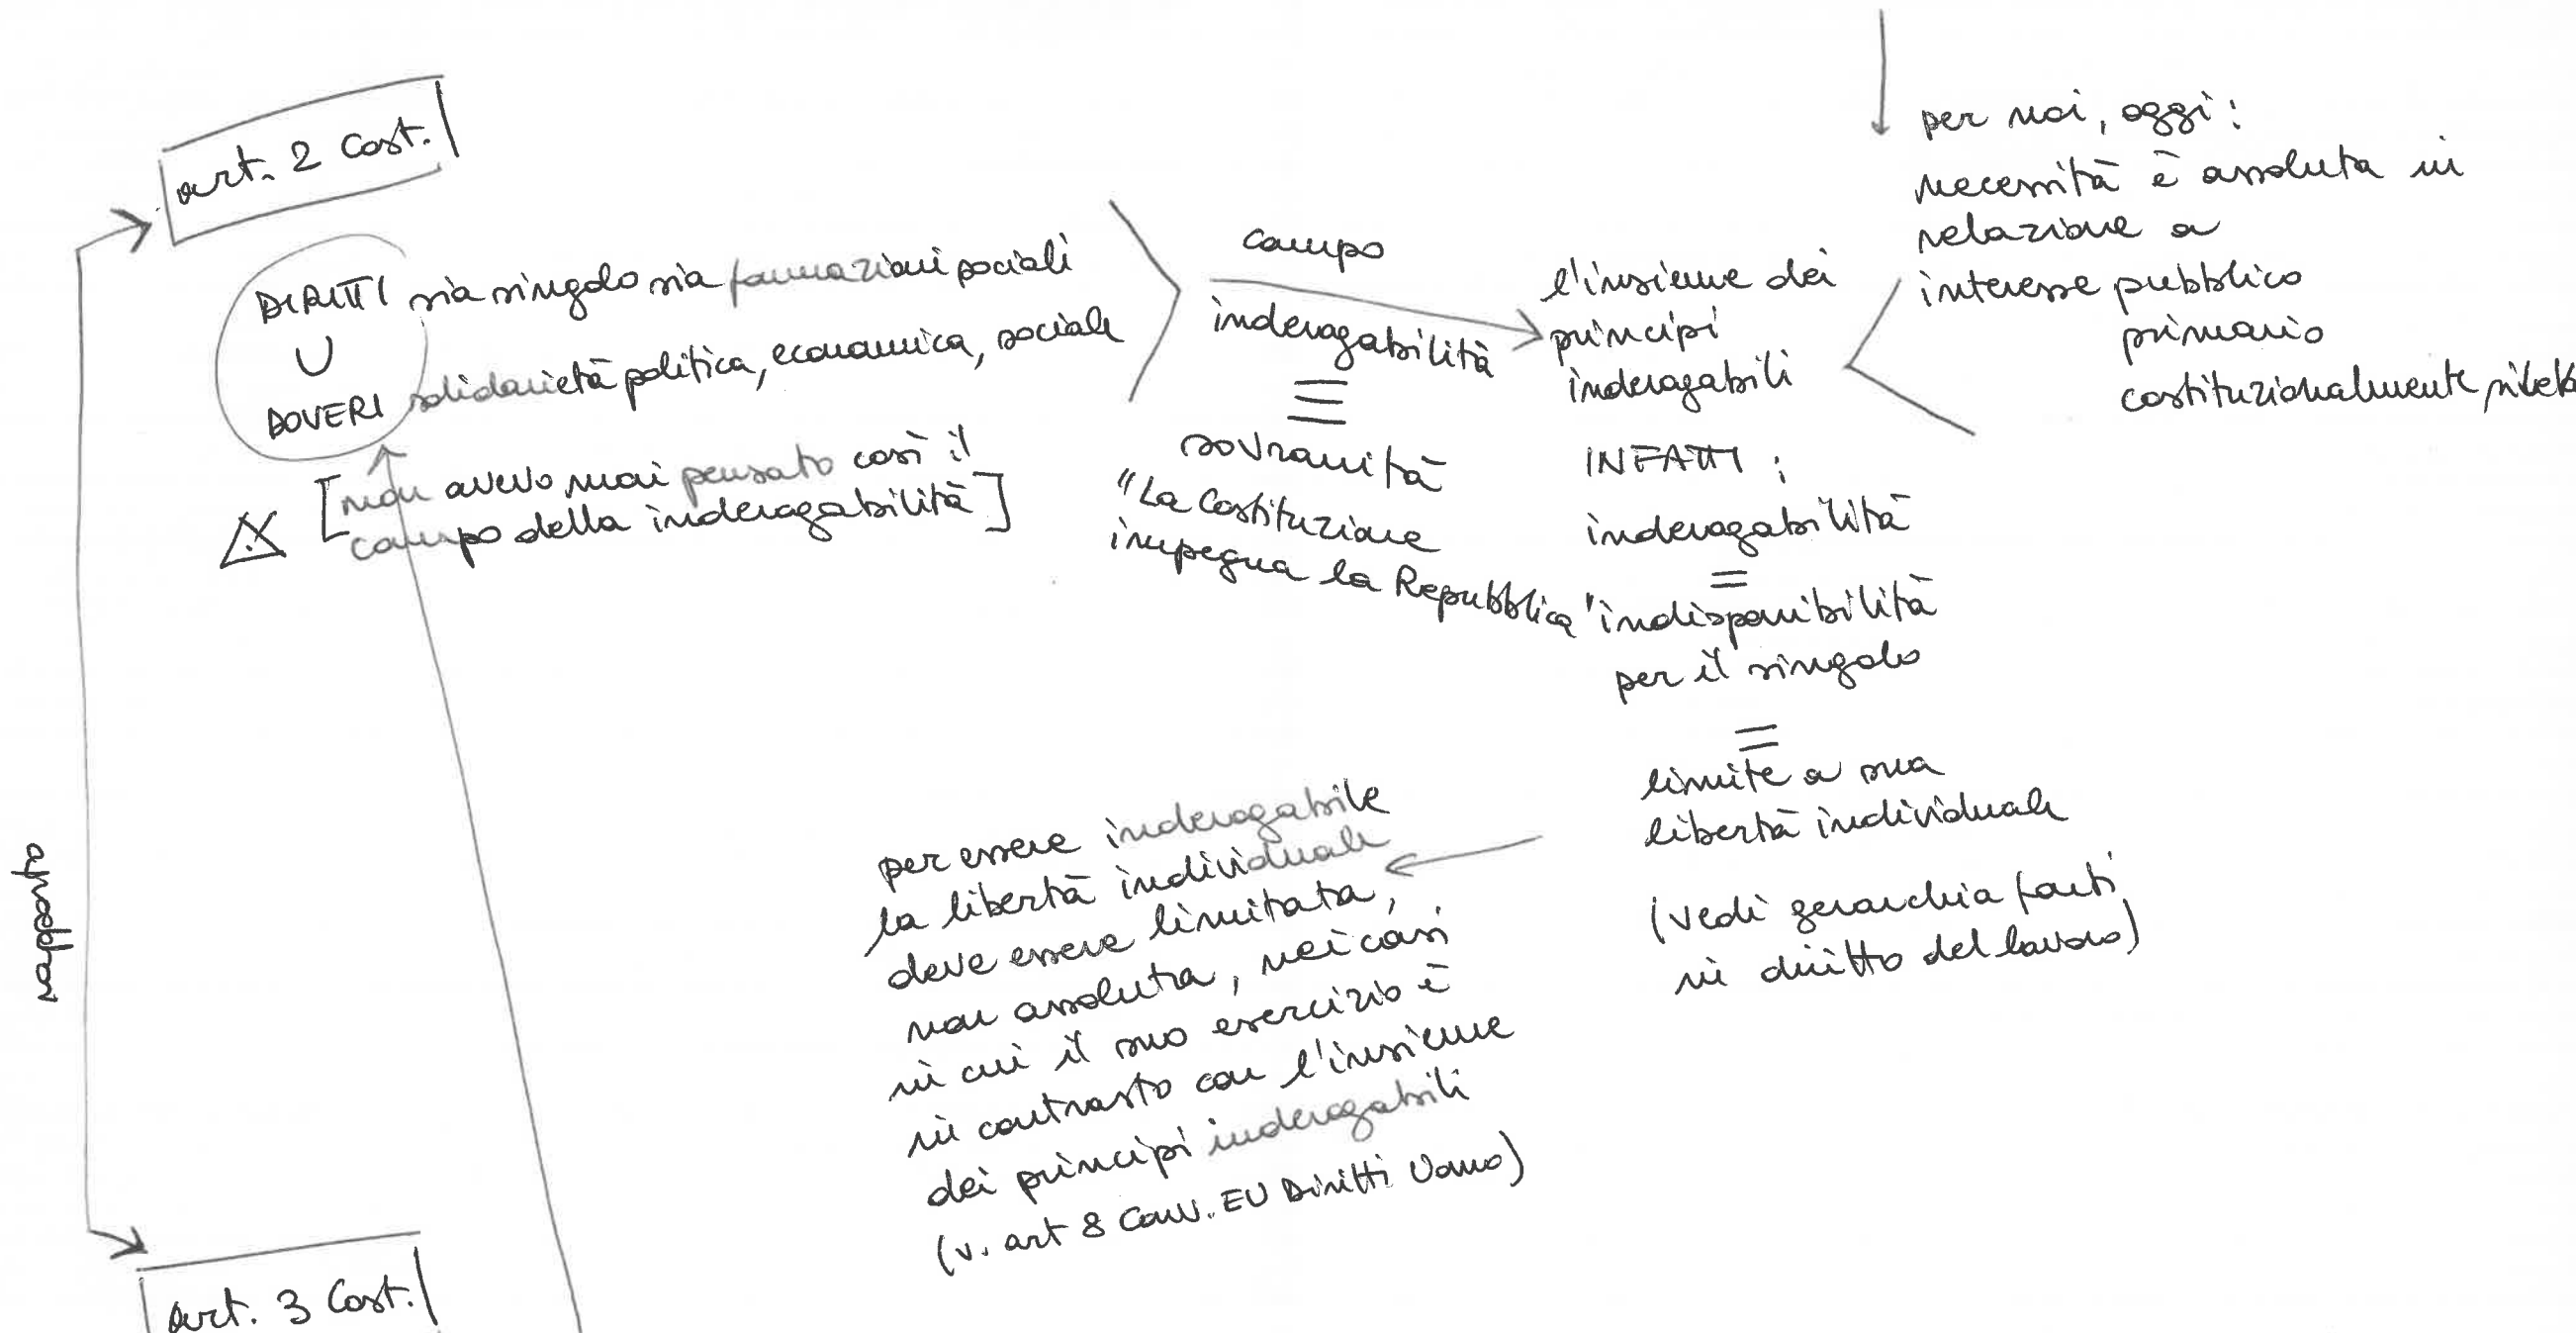 art. 2 Cost.
DIRITTI sia singolo sia formazioni sociali
U
DOVERI solidarietà politica, economica, sociale
[non avevo mai pensato così il
campo della inderogabilità]
campo
inderogabilità
≡
sovranità
"La Costituzione
impegna la Repubblica"
l'insieme dei
principi
inderogabili
INFATTI:
inderogabilità
=
indisponibilità
per il singolo
=
limite a sua
libertà individuale
(vedi gerarchia fonti
in diritto del lavoro)
per noi, oggi:
necessità è assoluta in
relazione a
interesse pubblico
primario
costituzionalmente
per essere inderogabile
la libertà individuale
deve essere limitata,
non assoluta, nei casi
in cui il suo esercizio è
in contrasto con l'insieme
dei principi inderogabili
(v. art 8 Conv. EU Diritti Uomo)
art. 3 Cost.